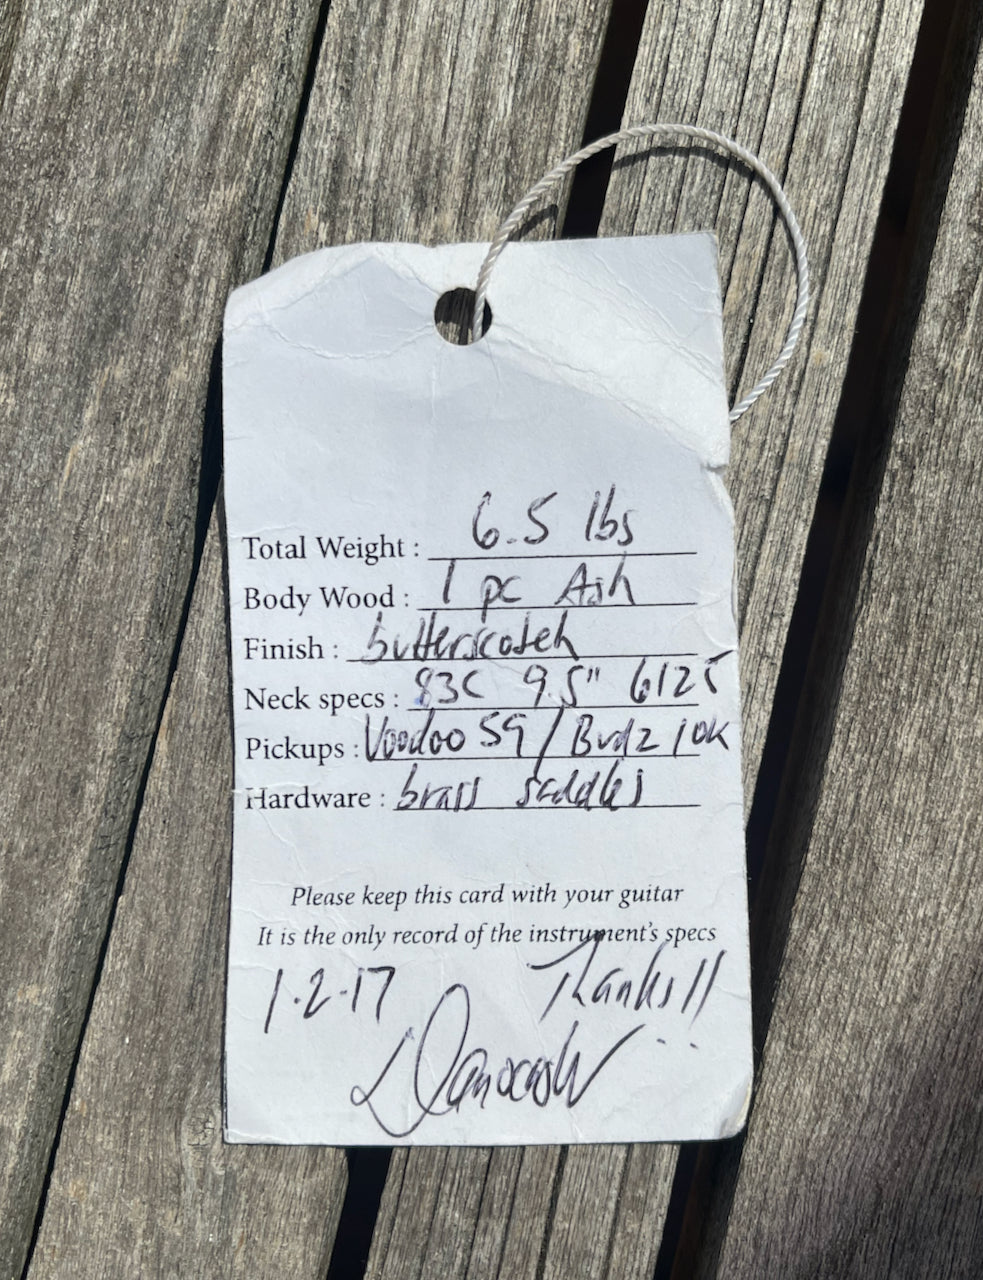 Total Weight : 6.5 lbs
Body Wood : 1 pc Ash
Finish : butterscotch
Neck specs : 83C 9.5" 6125
Pickups : Voodoo 59 / Brdz 10K
Hardware : brass saddles
Please keep this card with your guitar
It is the only record of the instrument's specs
1.2.17 Thanks!!